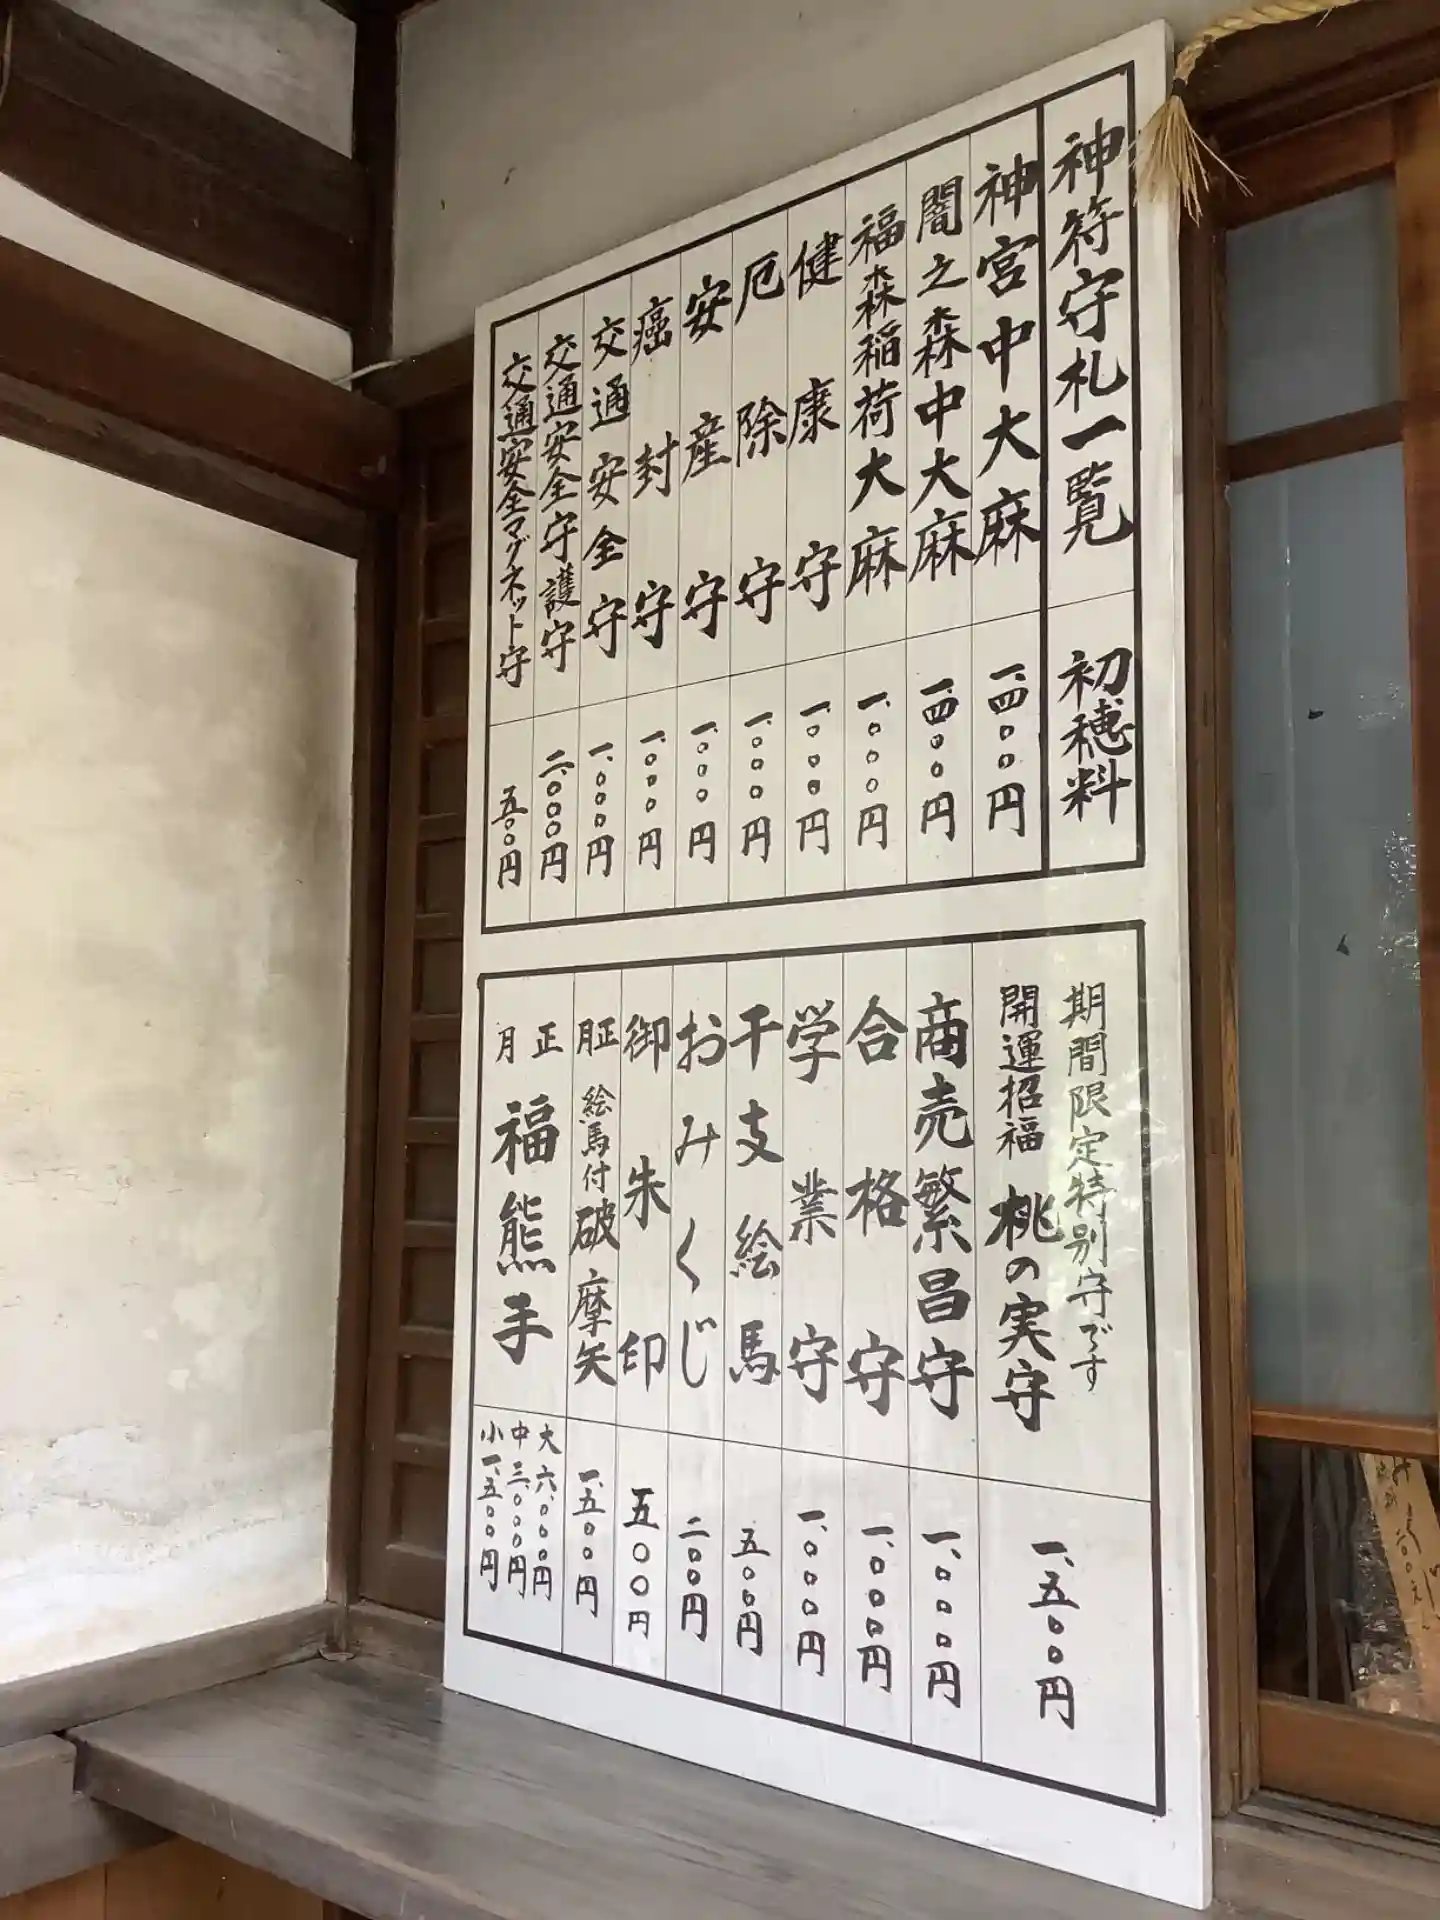 神符守札一覧 初穂料
神宮中大麻 一、四〇〇円
闇之森中大麻 一、四〇〇円
福森稲荷大麻 一、〇〇〇円
健康守 一、〇〇〇円
厄除守 一、〇〇〇円
安産守 一、〇〇〇円
癌封守 一、〇〇〇円
交通安全守 一、〇〇〇円
交通安全守護守 二、〇〇〇円
交通安全マグネット守 五〇〇円
期間限定特別守です
開運招福 桃の実守 一、五〇〇円
商売繁昌守 一、〇〇〇円
合格守 一、〇〇〇円
学業守 一、〇〇〇円
干支絵馬 五〇〇円
おみくじ 二〇〇円
御朱印 五〇〇円
正月 絵馬付破摩矢 一、五〇〇円
正月 福熊手 大 六、〇〇〇円
中 三、〇〇〇円
小 一、五〇〇円